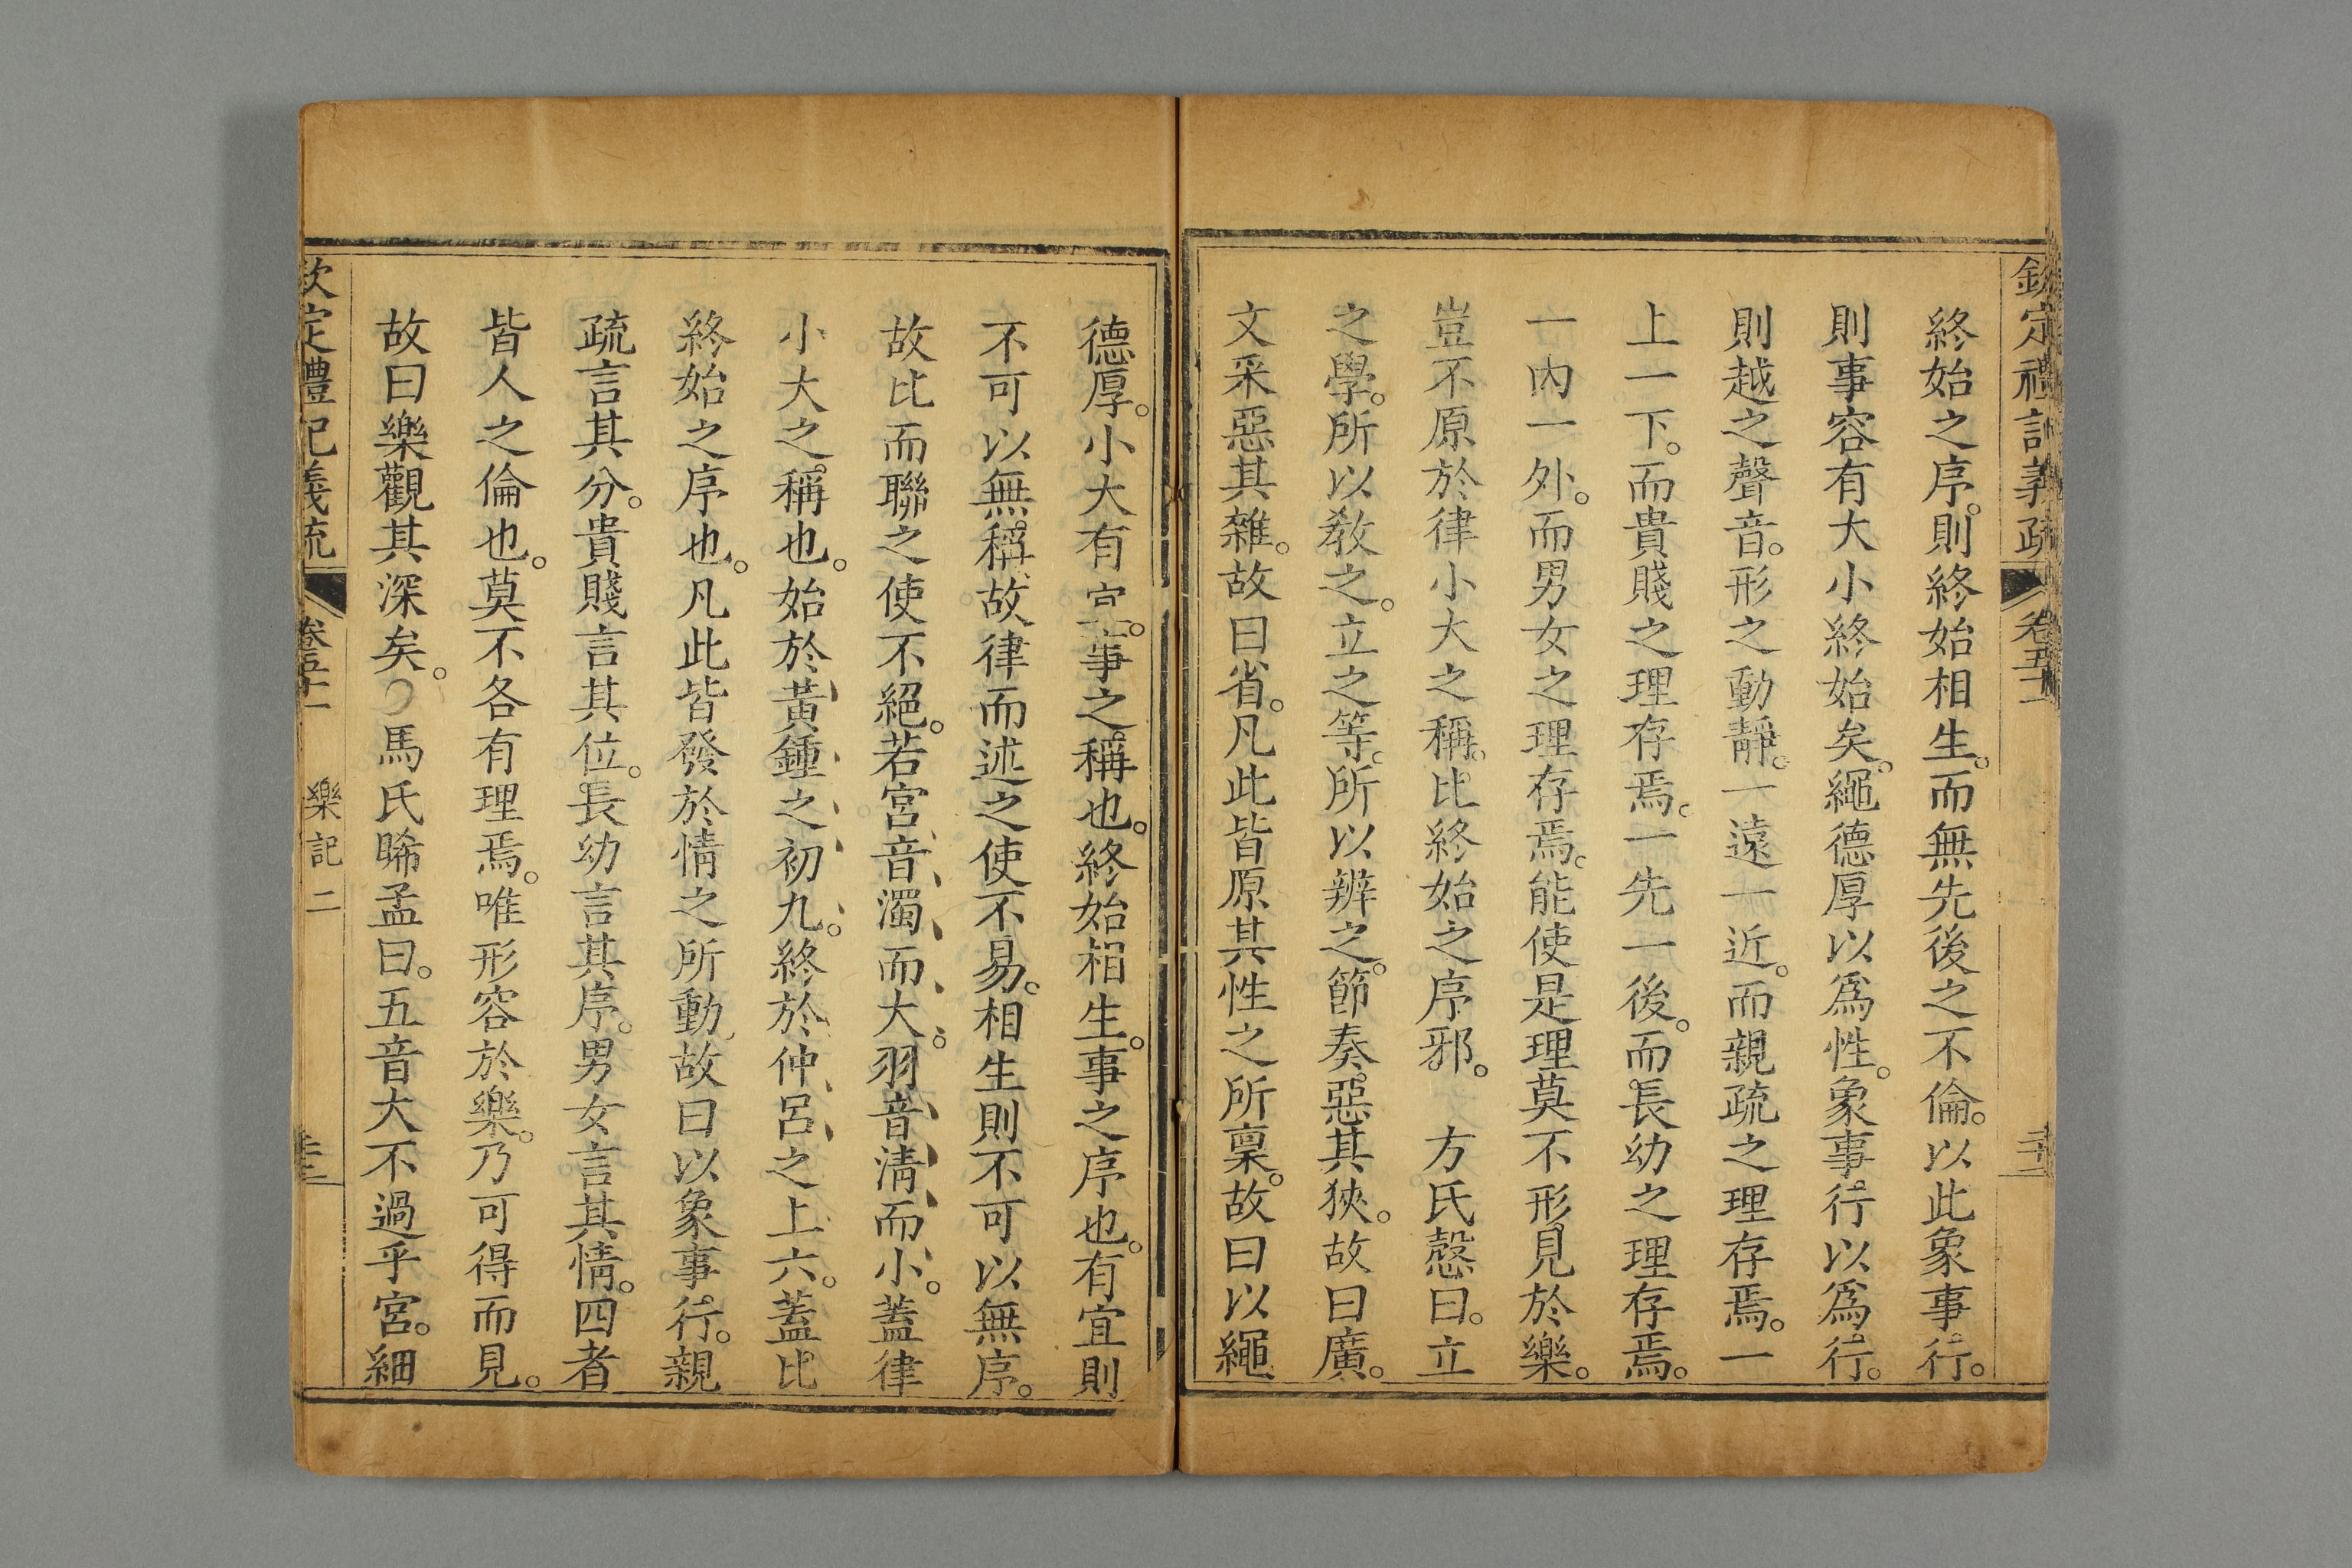 欽定禮記義疏 卷五十一
終始之序。則終始相生。而無先後之不倫。以此象事行。
則事容有大小終始矣。繩德厚以爲性。象事行以爲行。
則越之聲音。形之動靜。一遠一近。而親疏之理存焉。一
上一下。而貴賤之理存焉。一先一後。而長幼之理存焉。
一內一外。而男女之理存焉。能使是理莫不形見於樂。
豈不原於律小大之稱。比終始之序邪。 方氏慤曰。立
之學。所以敎之。立之等。所以辨之。節奏。惡其狹。故曰廣。
文采惡其雜。故曰省。凡此皆原其性之所稟。故曰以繩
德厚。小大有宜。事之稱也。終始相生。事之序也。有宜則
不可以無稱。故律而述之使不易。相生則不可以無序。
故比而聯之使不絕。若宮音濁而大。羽音淸而小。蓋律
小大之稱也。始於黃鍾之初九。終於仲呂之上六。蓋比
終始之序也。凡此皆發於情之所動。故曰以象事行。親
疏言其分。貴賤言其位。長幼言其序。男女言其情。四者
皆人之倫也。莫不各有理焉。唯形容於樂。乃可得而見。
故曰樂觀其深矣。○馬氏睎孟曰。五音大不過乎宮。細
欽定禮記義疏 卷五十一 樂記二